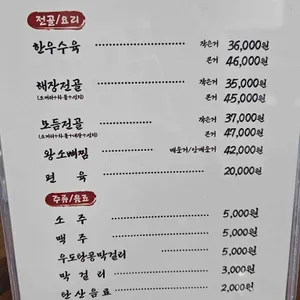 전골/요리
한우수육 작은거 36,000원
큰거 46,000원
해장전골 작은거 35,000원
큰거 45,000원
모듬전골 작은거 37,000원
큰거 47,000원
왕소뼈찜 매운거/안매운거 42,000원
편육 20,000원
주류/음료
소주 5,000원
맥주 5,000원
우도땅콩막걸리 5,000원
막걸리 3,000원
탄산음료 2,000원